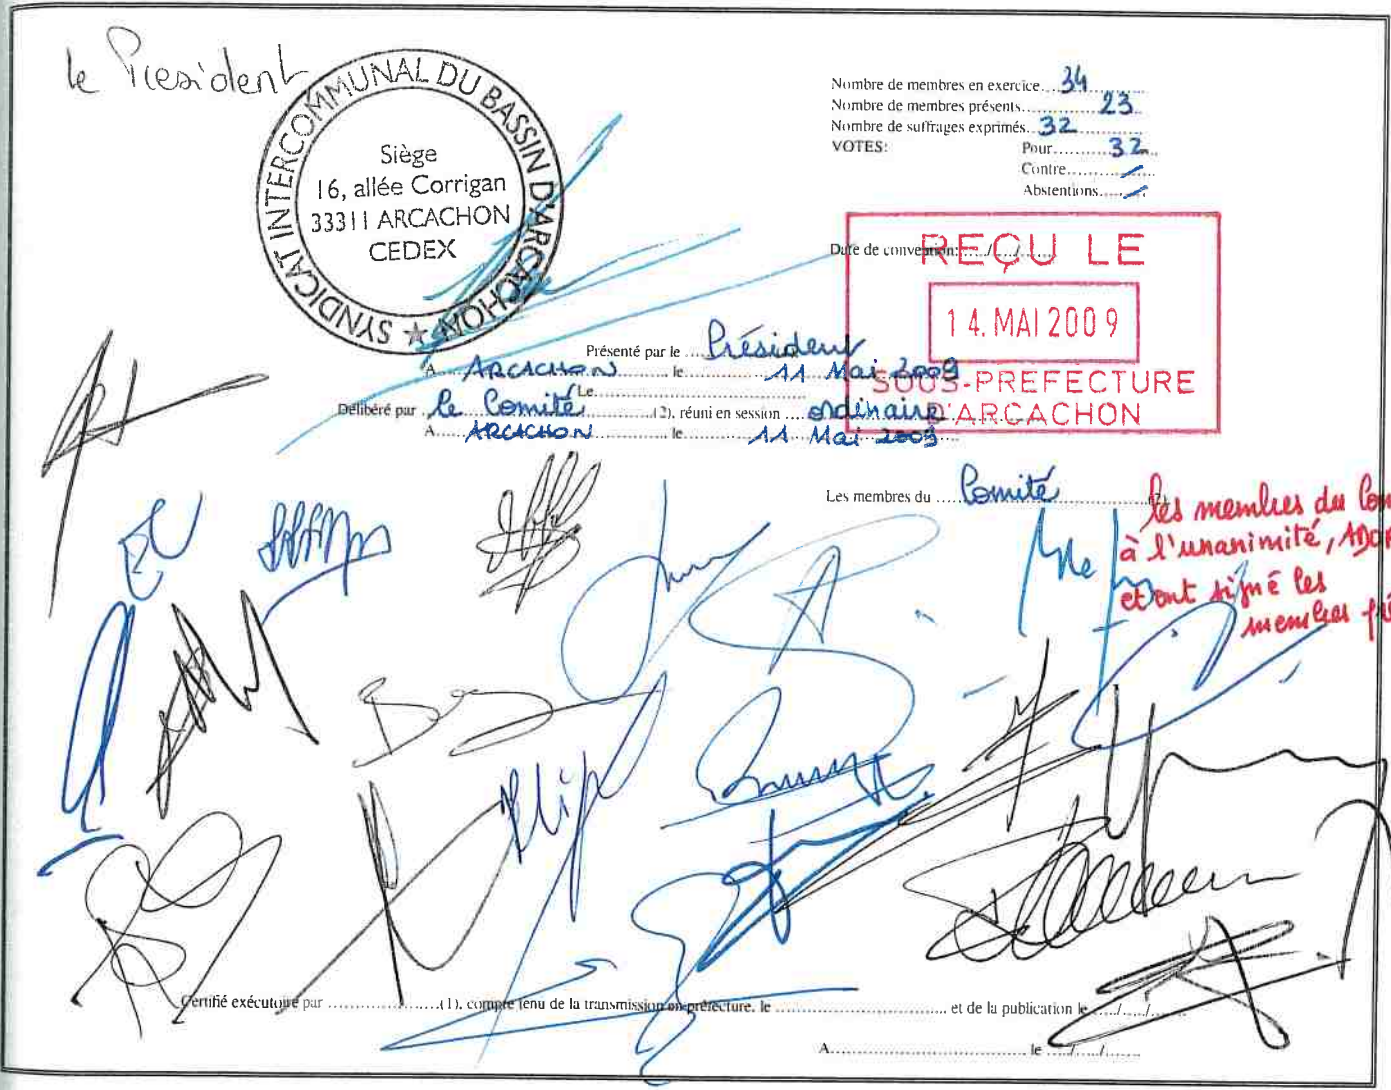 le President
SYNDICAT INTERCOMMUNAL DU BASSIN D'ARCACHON ★
Siège
16, allée Corrigan
33311 ARCACHON
CEDEX
Nombre de membres en exercice...34
Nombre de membres présents...23
Nombre de suffrages exprimés...32
VOTES:
Pour...32
Contre.../
Abstentions.../
Date de convention:..../..../....
REÇU LE
14. MAI 2009
SOUS-PREFECTURE
D'ARCACHON
Présenté par le ....Président
A....ARCACHON.... le ....11 Mai 2009
Le....
Délibéré par le Comité....(2), réuni en session ....ordinaire
A....ARCACHON.... le ....11 Mai 2009
Les membres du ....Comité....(2),
les membres du Com
à l'unanimité, ADOP
et ont signé les
membres pré
Certifié exécutoire par ....(1), compte tenu de la transmission en préfecture, le .... et de la publication le ..../..../....
A.... le ..../..../....